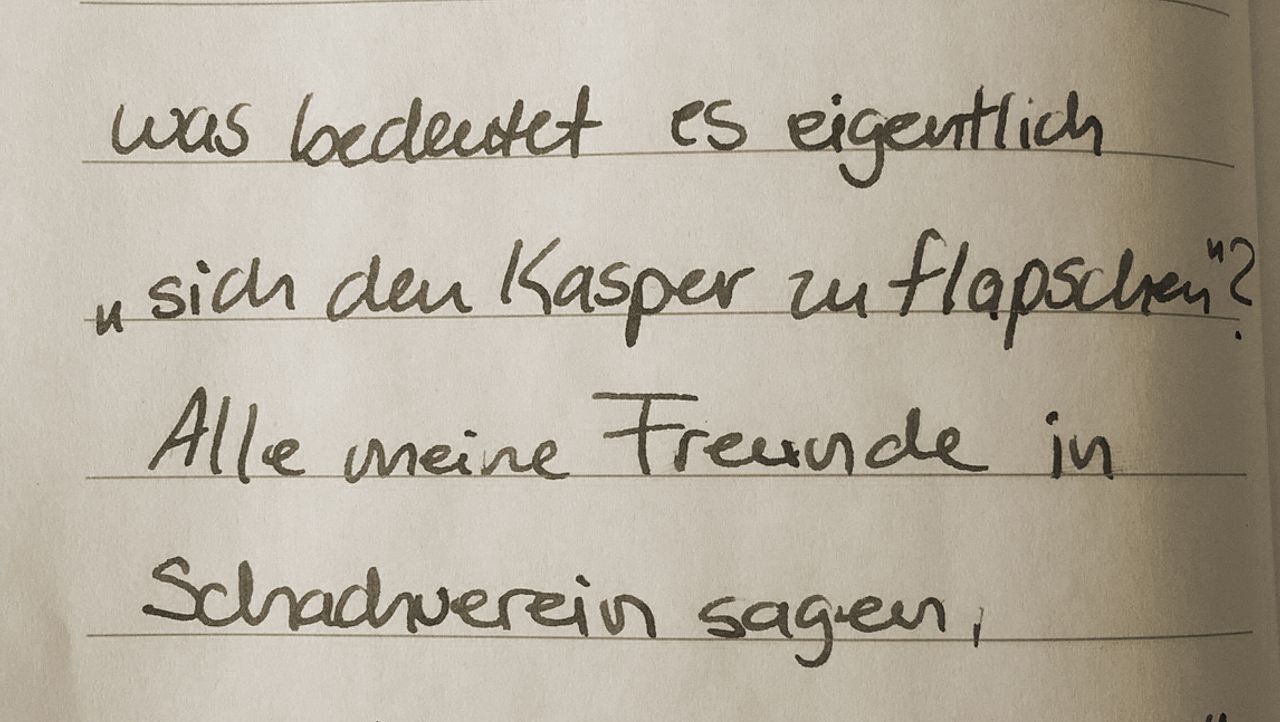 was bedeutet es eigentlich
„sich den Kasper zu flapschen"?
Alle meine Freunde in
Schachverein sagen,